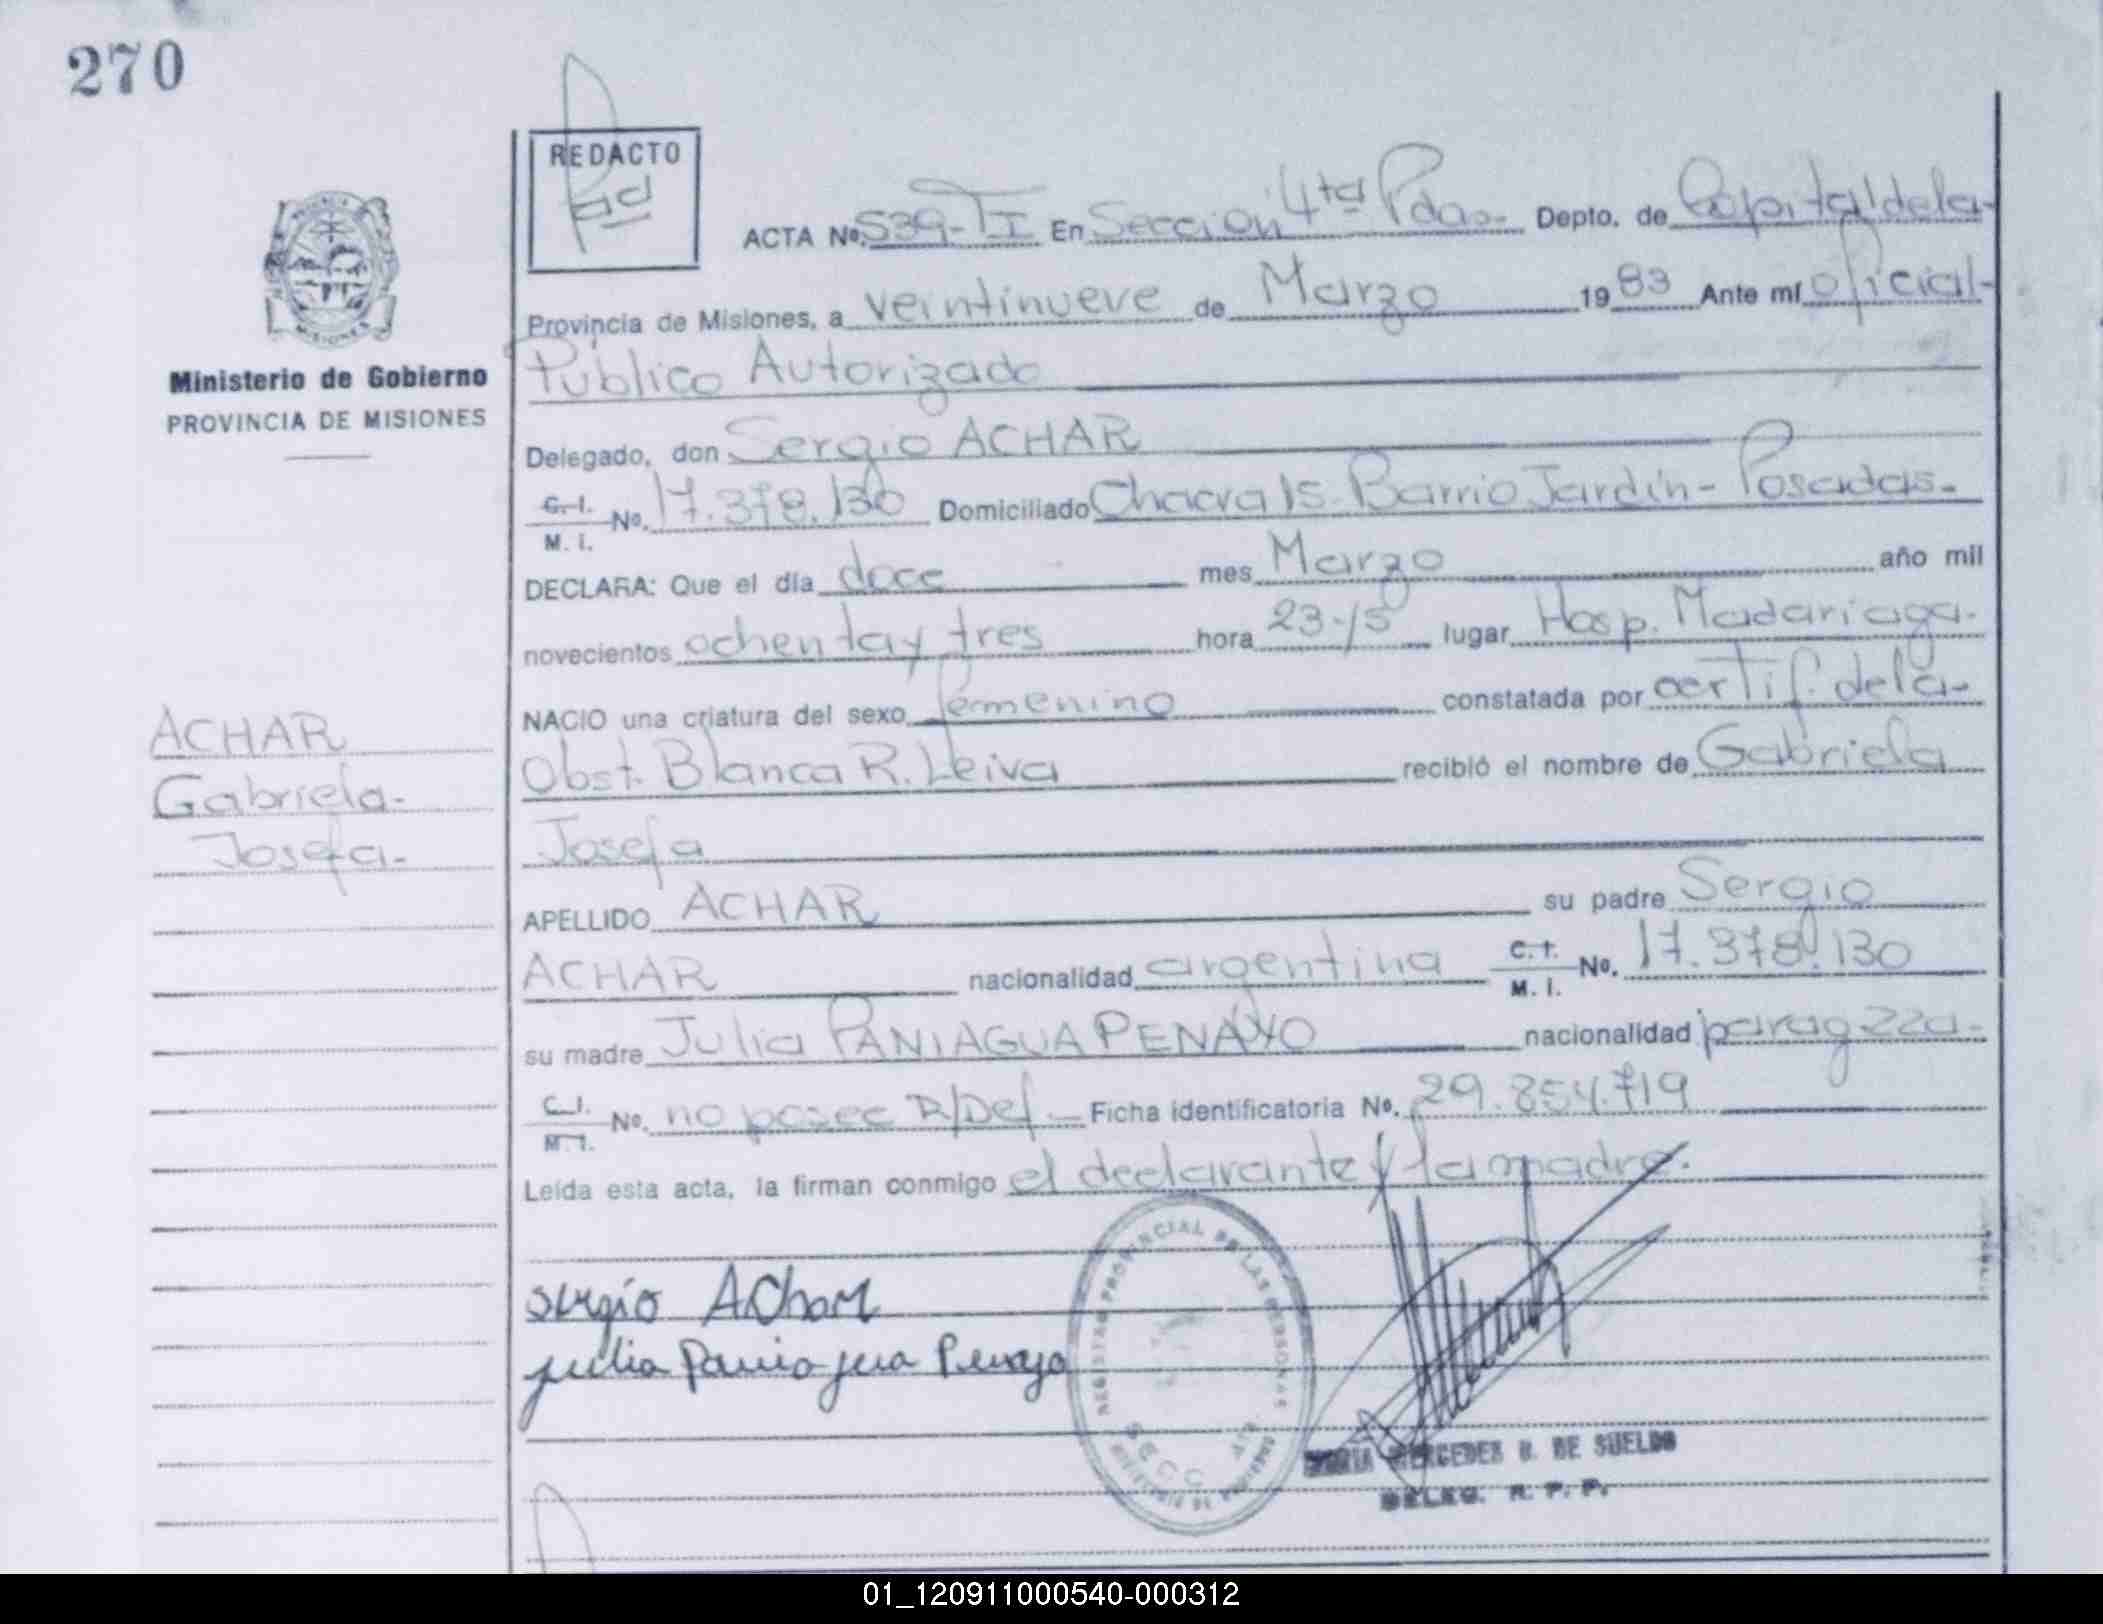 270
REDACTO
ACTA Nº 539-TI En Sección 4ta Pdas- Depto. de Capital de la-
Provincia de Misiones, a veintinueve de Marzo 1983 Ante mí oficial-
Ministerio de Gobierno
PROVINCIA DE MISIONES
Público Autorizado
Delegado, don Sergio ACHAR
C. I. M. I. No. 17.378.130 Domiciliado Chacra 15. Barrio Jardín - Posadas.-
DECLARA: Que el día doce mes Marzo año mil
novecientos ochenta y tres hora 23.15 lugar Hosp. Madariaga.
NACIO una criatura del sexo femenino constatada por certif. de la-
Obst. Blanca R. Leiva recibió el nombre de Gabriela
Josefa
ACHAR
Gabriela-
Josefa-
APELLIDO ACHAR su padre Sergio
ACHAR nacionalidad argentina C. I. M. I. No. 17.378.130
su madre Julia PANIAGUA PENAYO nacionalidad
C. I. M. I. No. no posee R/Def.- Ficha identificatoria No. 29.854.719
Leída esta acta, la firman conmigo el declarante y la madre.
Sergio AChar
Julia Paniagua Penayo
REGISTRO PROVINCIAL DE LAS PERSONAS
SECC. 4ta
MARIA MERCEDES B. DE SUELDO
DELEG. R. P. P.
01_120911000540-000312